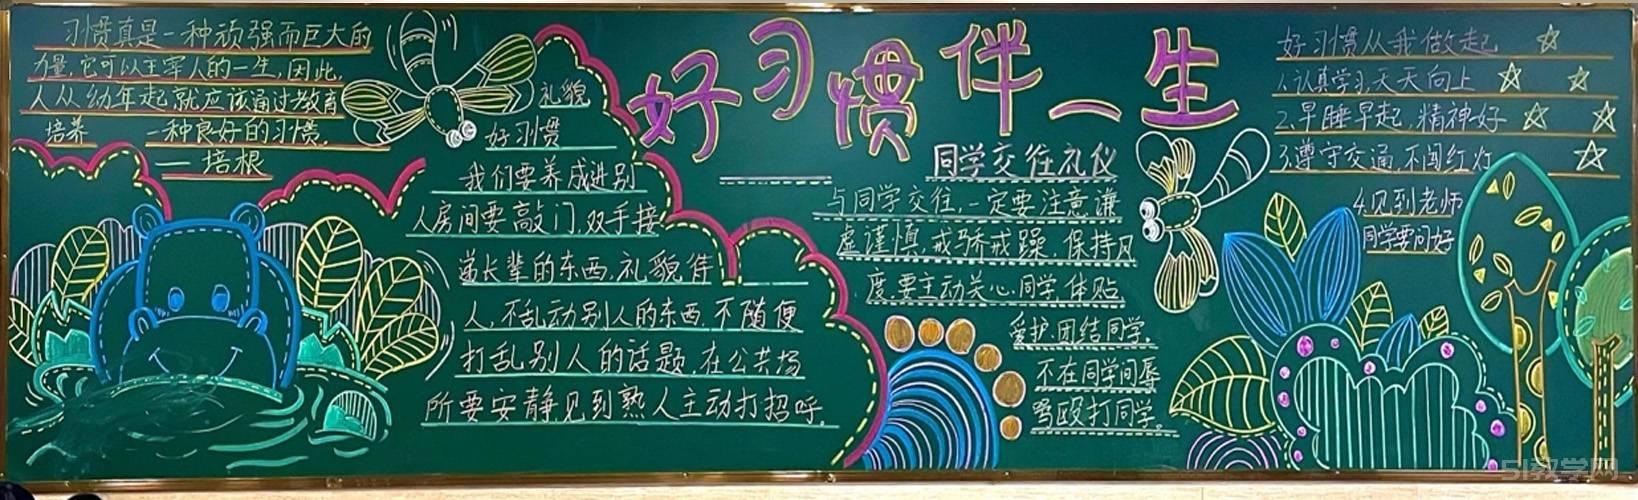 好习惯伴一生
习惯真是一种顽强而巨大的
力量,它可以主宰人的一生,因此,
人从幼年起就应该通过教育
培养 一种良好的习惯。
—培根
礼貌
好习惯
我们要养成进别
人房间要敲门,双手接
递长辈的东西,礼貌待
人,不乱动别人的东西,不随便
打乱别人的话题,在公共场
所要安静,见到熟人主动打招呼。
同学交往礼仪
与同学交往,一定要注意谦
虚谨慎,戒骄戒躁,保持风
度要主动关心同学,体贴
爱护,团结同学。
不在同学间辱
骂殴打同学。
好习惯从我做起
1.认真学习,天天向上
2.早睡早起,精神好
3.遵守交通,不闯红灯
4.见到老师
同学要问好
51教学网